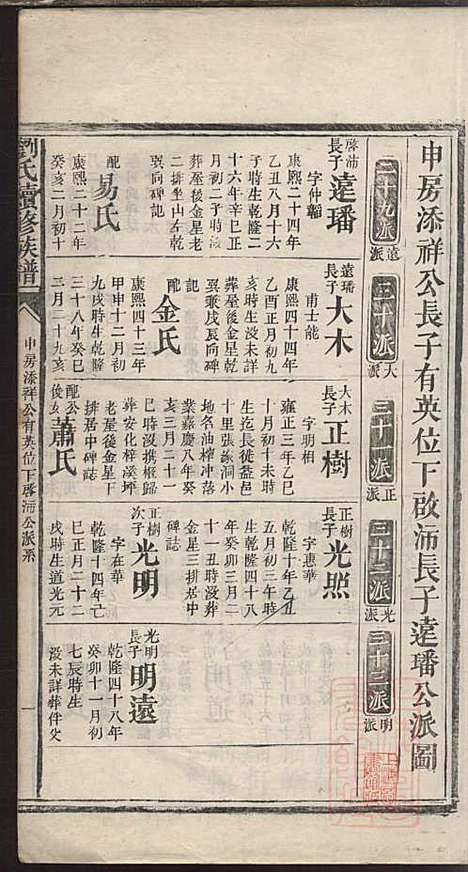 申房添祥公長子有英位下啟沛長子遠璠公派圖
二十九派 遠派
三十派 大派
三十一派 正派
三十二派 光派
三十三派 明派
啟沛長子 遠璠
字仲韜
康熙二十四年
乙丑八月十六
子時生乾隆二
十六年辛巳正
月初二子時沒
葬屋後金星老
二排坐山左乾
巽向碑記
配 易氏
康熙二十二年
癸亥二月初十
遠璠長子 大木
甫士能
康熙四十四年
乙酉正月初九
亥時生沒未詳
葬屋後金星乾
巽兼戊辰向碑
記
配 金氏
康熙四十三年
甲申十二月初
九戌時生乾隆
三十八年癸巳
三月三十九亥
大木長子 正樹
字明相
雍正三年乙巳
十月初十未時
生迄長徒益邑
地名油榨冲落
十里張家洞小
業嘉慶八年癸
亥三月二十一
巳時沒携櫬歸
葬安化梓溪坪
老屋後金星下
排居中碑誌
配公後女 蕭氏
正樹長子 光照
字惠華
乾隆十年乙丑
五月初三午時
生乾隆四十八
年癸卯三月二
十一丑時沒葬
金星三排居中
碑誌
正樹次子 光明
字在華
乾隆十四年己
巳正月二十二
戌時生道光元
光明長子 明遠
乾隆四十八年
癸卯十一月初
七辰時生
沒未詳葬伴父
劉氏續修族譜
申房添祥公有英位下啟沛公派系
一